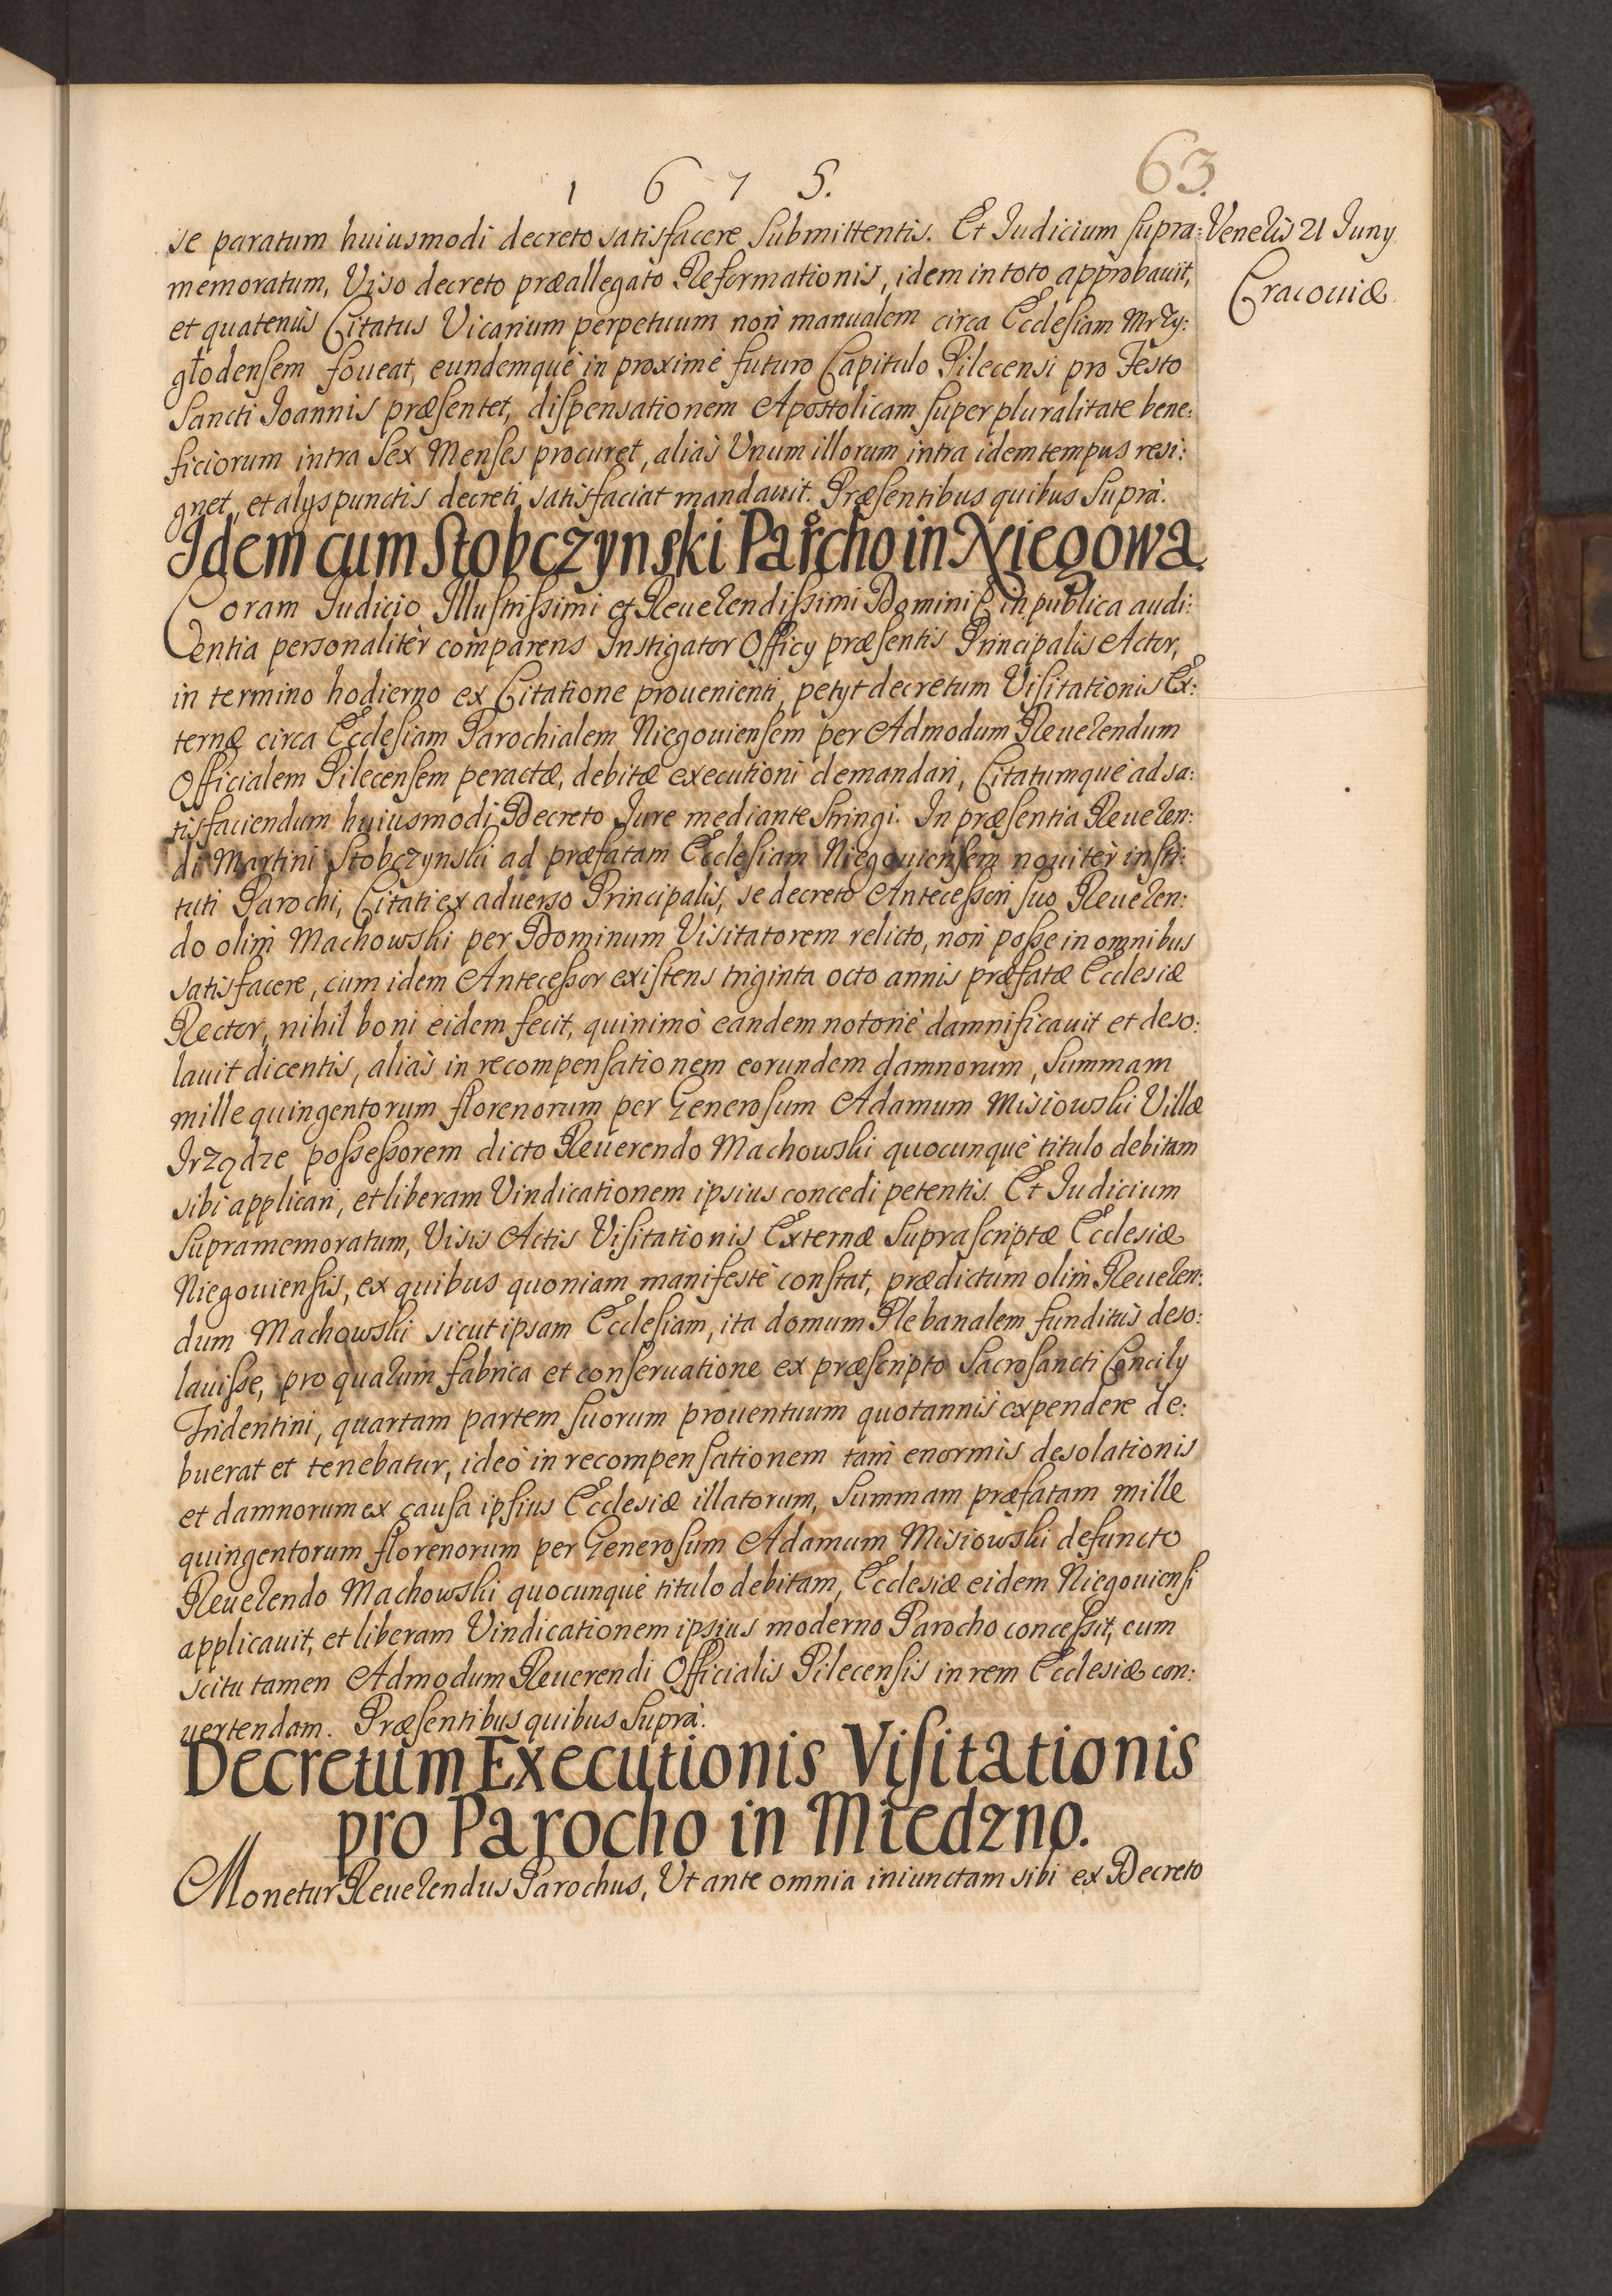 1 6 7 5.
63.
se paratum huiusmodi decreto satisfacere submittentis. Et Iudicium supra:
Veneris 21 Iuny
Cracouiæ
memoratum, Viso decreto præallegato Reformationis, idem in toto approbauit,
et quatenùs Citatus Vicarium perpetuum non manualem circa Ecclesiam Mrzy:
głodensem foueat, eundemque in proximè futuro Capitulo Pilecensi pro Festo
Sancti Ioannis præsentet, dispensationem Apostolicam super pluralitate bene:
ficiorum intra Sex Menses procuret, aliàs Unum illorum intra idem tempus resi:
gnet, et alys punctis decreti satisfaciat mandauit. Præsentibus quibus Suprà.
Idem cum Stobczynski Parcho in Niegowa.
Coram Iudicio Illustrissimi et Reuerendissimi Domini E. in publica audi:
entia personalitèr comparens Instigator Officy præsentis Principalis Actor,
in termino hodierno ex Citatione prouenienti, petyt decretum Visitationis Ex:
ternæ circa Ecclesiam Parochialem Niegouiensem per Admodum Reuerendum
Officialem Pilecensem peractæ, debitæ executioni demandari, Citatumque ad sa:
tisfaciendum huiusmodi Decreto Iure mediante stringi. In præsentia Reueren:
di Martini Stobczynski ad præfatam Ecclesiam Niegouiensem nouitèr insti:
tuti Parochi, Citati ex aduerso Principalis, se decreto Antecessori suo Reueren:
do olim Machowski per Dominum Visitatorem relicto, non posse in omnibus
satisfacere, cum idem Antecessor existens triginta octo annis præfatæ Ecclesiæ
Rector, nihil boni eidem fecit, quinimò eandem notoriè damnificauit et deso:
lauit dicentis, aliàs in recompensationem eorundem damnorum, Summam
mille quingentorum florenorum per Generosum Adamum Misiowski Villæ
Irządze possessorem dicto Reuerendo Machowski quocunque titulo debitam
sibi applicari, et liberam Vindicationem ipsius concedi petentis. Et Iudicium
Supramemoratum, Visis Actis Visitationis Externæ Suprascriptæ Ecclesiæ
Niegouiensis, ex quibus quoniam manifestè constat, prædictum olim Reueren:
dum Machowski sicut ipsam Ecclesiam, ita domum Plebanalem funditùs deso:
lauisse, pro quarum fabrica et conseruatione ex præscripto Sacrosancti Concily
Tridentini, quartam partem suorum prouentuum quotannis expendere de:
buerat et tenebatur, ideò in recompensationem tam enormis desolationis
et damnorum ex causa ipsius Ecclesiæ illatorum, Summam præfatam mille
quingentorum florenorum per Generosum Adamum Misiowski defuncto
Reuerendo Machowski quocunque titulo debitam, Ecclesiæ eidem Niegouiensi
applicauit, et liberam Vindicationem ipsius moderno Parocho concessit, cum
scitu tamen Admodum Reuerendi Officialis Pilecensis in rem Ecclesiæ con:
uertendam. Præsentibus quibus Suprà.
Decretum Executionis Visitationis
pro Parocho in Miedzno.
Monetur Reuerendus Parochus, Ut ante omnia iniunctam sibi ex Decreto